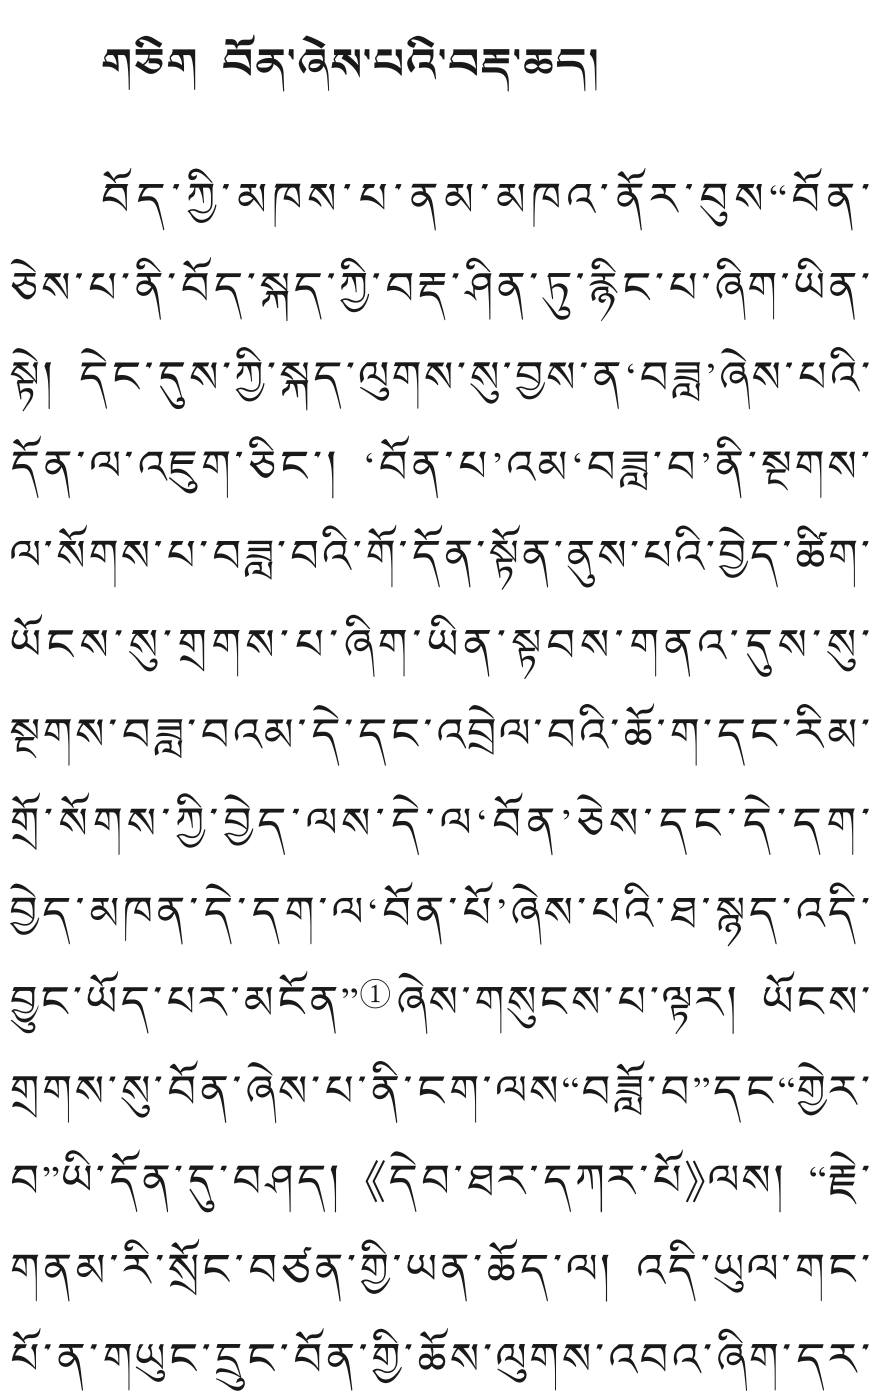 གཅིག བོན་ཞེས་པའི་བརྡ་ཆད།
བོད་ཀྱི་མཁས་པ་ནམ་མཁའ་ནོར་བུས“བོན་
ཅེས་པ་ནི་བོད་སྐད་ཀྱི་བརྡ་ཤིན་ཏུ་རྙིང་པ་ཞིག་ཡིན་
སྟེ། དེང་དུས་ཀྱི་སྐད་ལུགས་སུ་བྱས་ན‘བཟླ’ཞེས་པའི་
དོན་ལ་འཇུག་ཅིང་། ‘བོན་པ’འམ‘བཟླ་བ’ནི་སྔགས་
ལ་སོགས་པ་བཟླ་བའི་གོ་དོན་སྟོན་ནུས་པའི་བྱེད་ཚིག་
ཡོངས་སུ་གྲགས་པ་ཞིག་ཡིན་སྟབས་གནའ་དུས་སུ་
སྔགས་བཟླ་བའམ་དེ་དང་འབྲེལ་བའི་ཆོ་ག་དང་རིམ་
གྲོ་སོགས་ཀྱི་བྱེད་ལས་དེ་ལ‘བོན’ཅེས་དང་དེ་དག་
བྱེད་མཁན་དེ་དག་ལ‘བོན་པོ’ཞེས་པའི་ཐ་སྙད་འདི་
བྱུང་ཡོད་པར་མངོན”①ཞེས་གསུངས་པ་ལྟར། ཡོངས་
གྲགས་སུ་བོན་ཞེས་པ་ནི་ངག་ལས“བཟློ་བ”དང“གྱེར་
བ”ཡི་དོན་དུ་བཤད། 《དེབ་ཐར་དཀར་པོ》ལས། “རྗེ་
གནམ་རི་སྲོང་བཙན་གྱི་ཡན་ཆོད་ལ། འདི་ཡུལ་གང་
པོ་ན་གཡུང་དྲུང་བོན་གྱི་ཆོས་ལུགས་འབའ་ཞིག་དར་